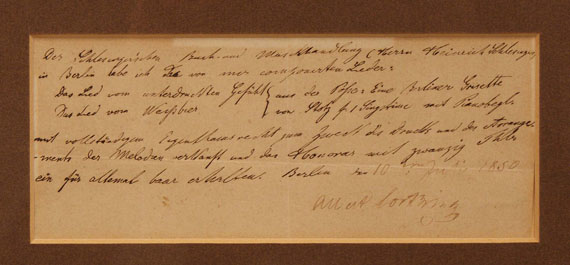 Der Schlesinger'schen Buch- und Musikhandlung (Herrn Heinrich Schlesinger)
in Berlin habe ich die von mir componirten Lieder:
Das Lied vom unterdrückten Gefühl } aus der Posse: Eine Berliner Grisette
Das Lied vom Weißbier } von Stotz f. 1 Singstimme mit Pianobegl.
mit vollständigem Eigenthumsrecht zum Zweck des Drucks und des Arrange-
-ments der Melodien verkauft und das Honorar mit zwanzig Thlr
ein für allemal baar erhalten. Berlin 10 1850
Albert Lortzing